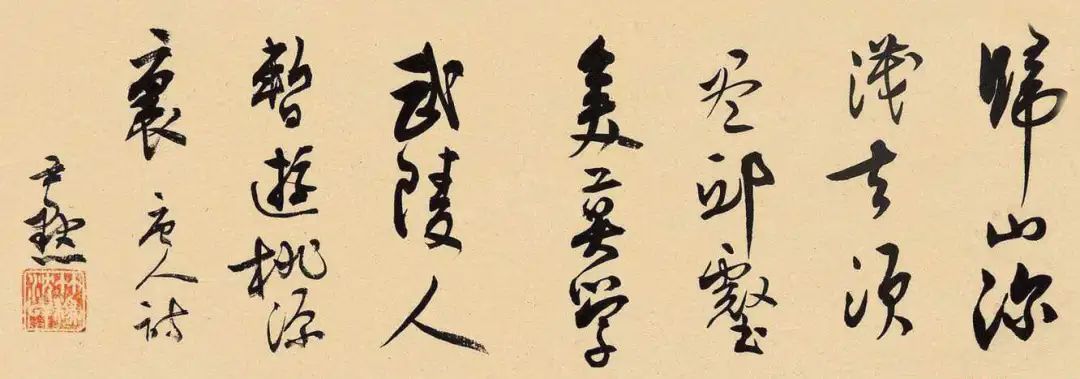 歸山深
淺去須
尽邱壑
美莫学
武陵人
暫遊桃源
裏 唐人詩
尹默